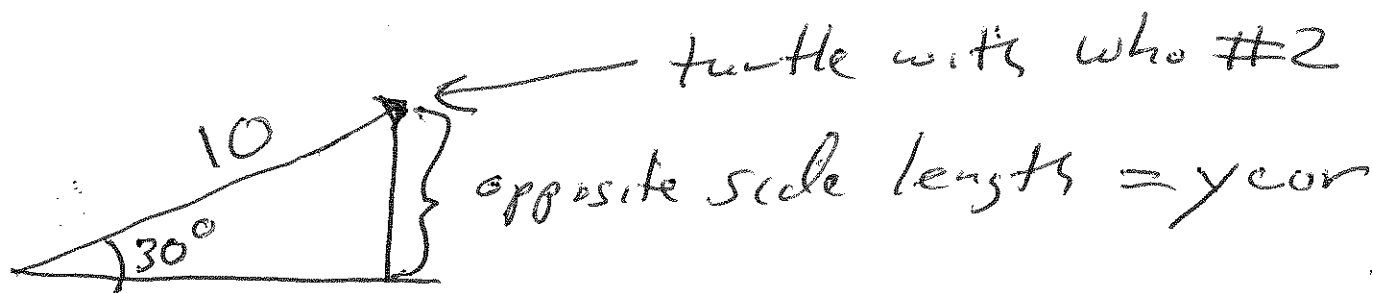 turtle with who #2
10
opposite side length = ycor
30°